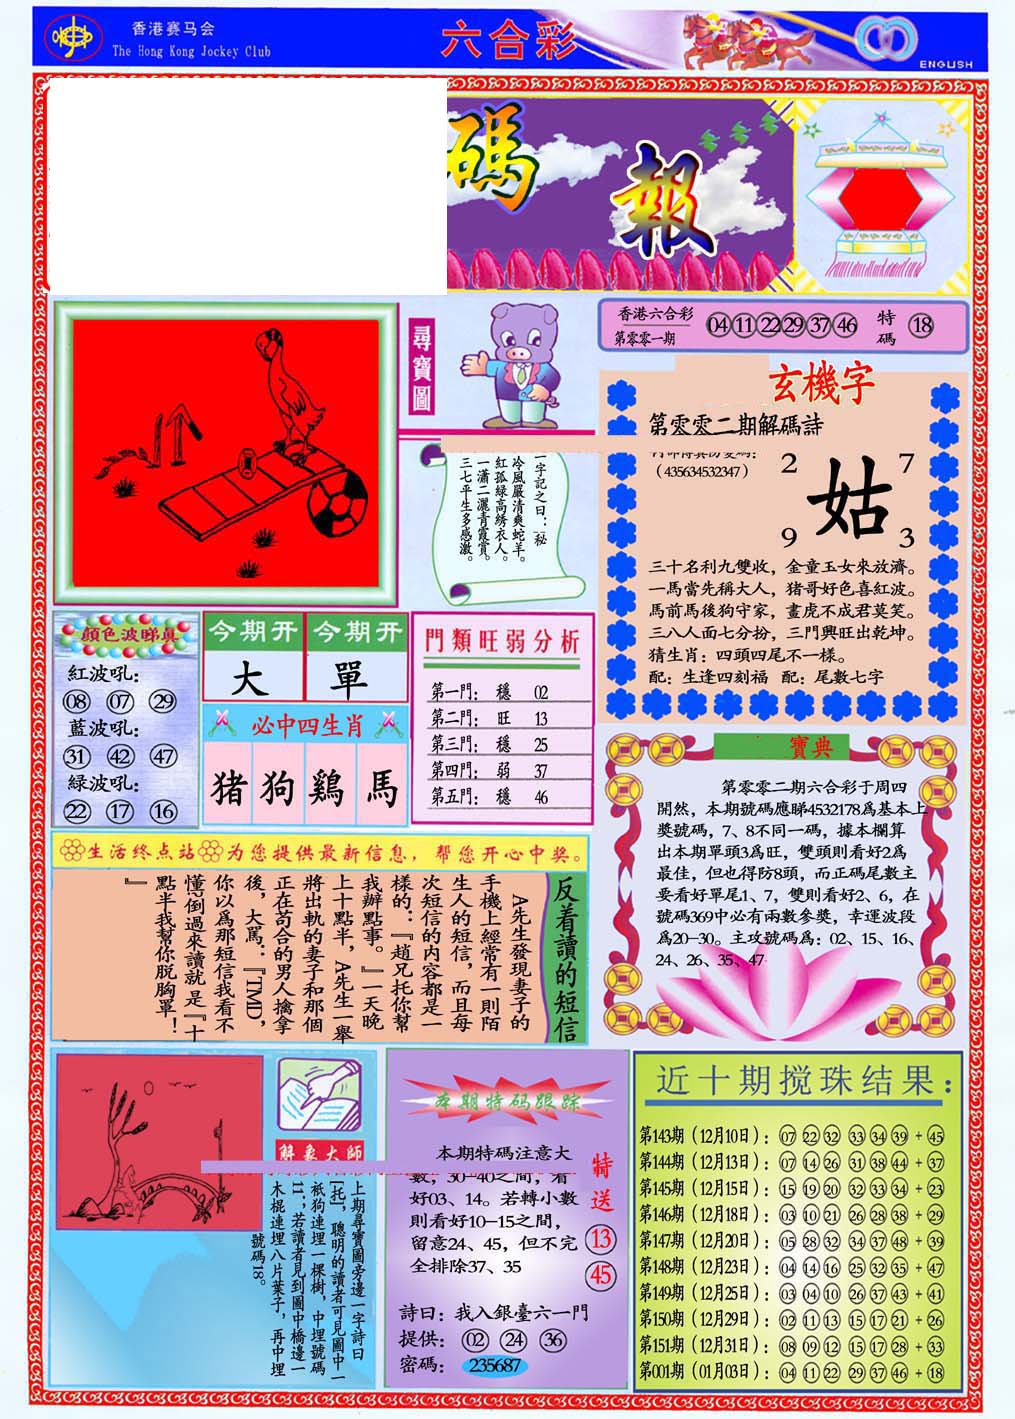 香港赛马会
The Hong Kong Jockey Club
六合彩
ENGLISH
碼報
尋寶圖
香港六合彩
第零零一期
04 11 22 29 37 46 特碼 18
玄機字
第零零二期解碼詩
（435634532347）
2 7
姑
9 3
三十名利九雙收，金童玉女來放濟。
一馬當先稱大人，猪哥好色喜紅波。
馬前馬後狗守家，畫虎不成君莫笑。
三八人面七分扮，三門興旺出乾坤。
猜生肖：四頭四尾不一樣。
配：生逢四刻福 配：尾數七字
一字記之曰：秘
冷風嚴清爽蛇羊。
紅孤綠高綉衣人。
一瀟二灑青霞賞。
三七平生多感激。
顔色波睇真
紅波吼：
08 07 29
藍波吼：
31 42 47
緑波吼：
22 17 16
今期开 今期开
大 單
必中四生肖
猪 狗 鷄 馬
門類旺弱分析
第一門： 穩 02
第二門： 旺 13
第三門： 穩 25
第四門： 弱 37
第五門： 穩 46
寶典
第零零二期六合彩于周四
開然，本期號碼應睇4532178爲基本上
獎號碼，7、8不同一碼，據本欄算
出本期單頭3爲旺，雙頭則看好2爲
最佳，但也得防8頭，而正碼尾數主
要看好單尾1、7，雙則看好2、6，在
號碼369中必有兩數參獎，幸運波段
爲20—30。主攻號碼爲：02、15、16、
24、26、35、47
生活终点站 为您提供最新信息，帮您开心中奖。
反着讀的短信
A先生發現妻子的
手機上經常有一則陌
生人的短信，而且每
次短信的内容都是一
樣的：『趙兄托你幫
我辦點事。』一天晚
上十點半，A先生一舉
將出軌的妻子和那個
正在苟合的男人擒拿
後，大罵：『TMD，
你以爲那短信我看不
懂，倒過來讀就是『十
點半我幫你脱胸罩！
』
解象大師
上期尋寶圖旁邊一字詩曰
[托]，聰明的讀者可見圖中一
衹狗連埋一棵樹，中埋號碼
11；若讀者見到圖中橋邊一
木棍連埋八片葉子，再中埋
號碼18。
本期特码跟踪
本期特碼注意大
數，30—40之間，看
好03、14。若轉小數
則看好10—15之間，
留意24、45，但不完
全排除37、35
特送
13
45
詩曰：我入銀臺六一門
提供： 02 24 36
密碼： 235687
近十期搅珠结果：
第143期（12月10日）：07 22 32 33 34 39 + 45
第144期（12月13日）：07 14 26 31 38 44 + 37
第145期（12月15日）：15 19 20 32 33 34 + 23
第146期（12月18日）：03 10 21 26 28 38 + 29
第147期（12月20日）：05 28 32 34 37 48 + 39
第148期（12月23日）：04 14 16 25 32 35 + 47
第149期（12月25日）：03 04 10 26 37 43 + 41
第150期（12月29日）：02 11 13 15 17 21 + 26
第151期（12月31日）：08 09 12 15 17 28 + 33
第001期（01月03日）：04 11 22 29 37 46 + 18